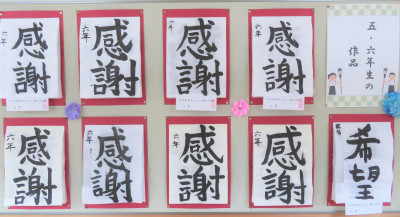 五・六年生の
作品
感謝
六年
感謝
六年
感謝
六年
感謝
六年
希望
感謝
六年
感謝
六年
感謝
六年
感謝
六年